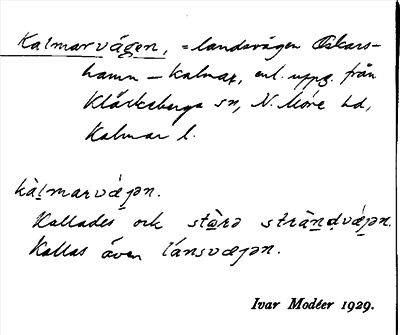 Kalmarvägen, = landsvägen Oskars-
hamn – Kalmar, enl. uppg. från
Kläckeberga sn, N. Möre hd,
Kalmar l.
kàḷmarvǽɟən.
Kallades ock stằrə stràṇḍvǽɟən.
Kallas även lánsvæɟən.
Ivar Modéer 1929.